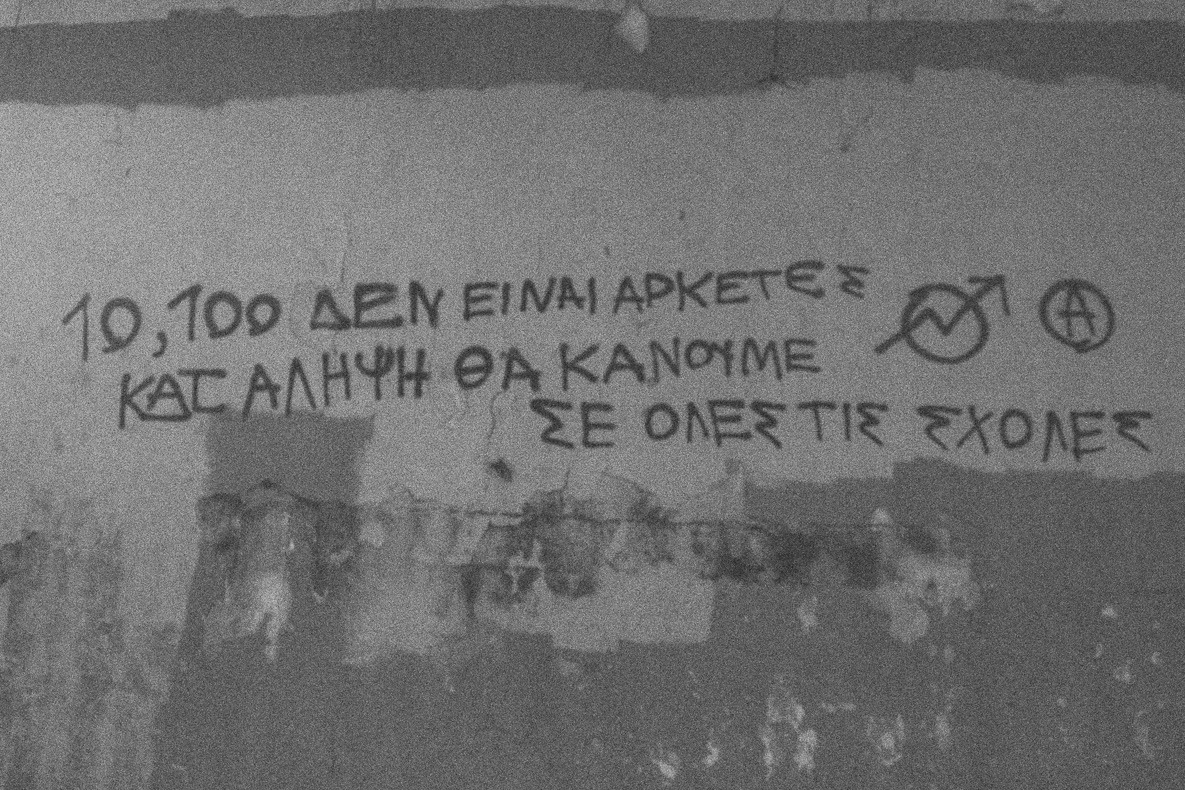 10,100 ΔΕΝ ΕΙΝΑΙ ΑΡΚΕΤΕΣ Ⓐ
ΚΑΤΑΛΗΨΗ ΘΑ ΚΑΝΟΥΜΕ
ΣΕ ΟΛΕΣ ΤΙΣ ΣΧΟΛΕΣ